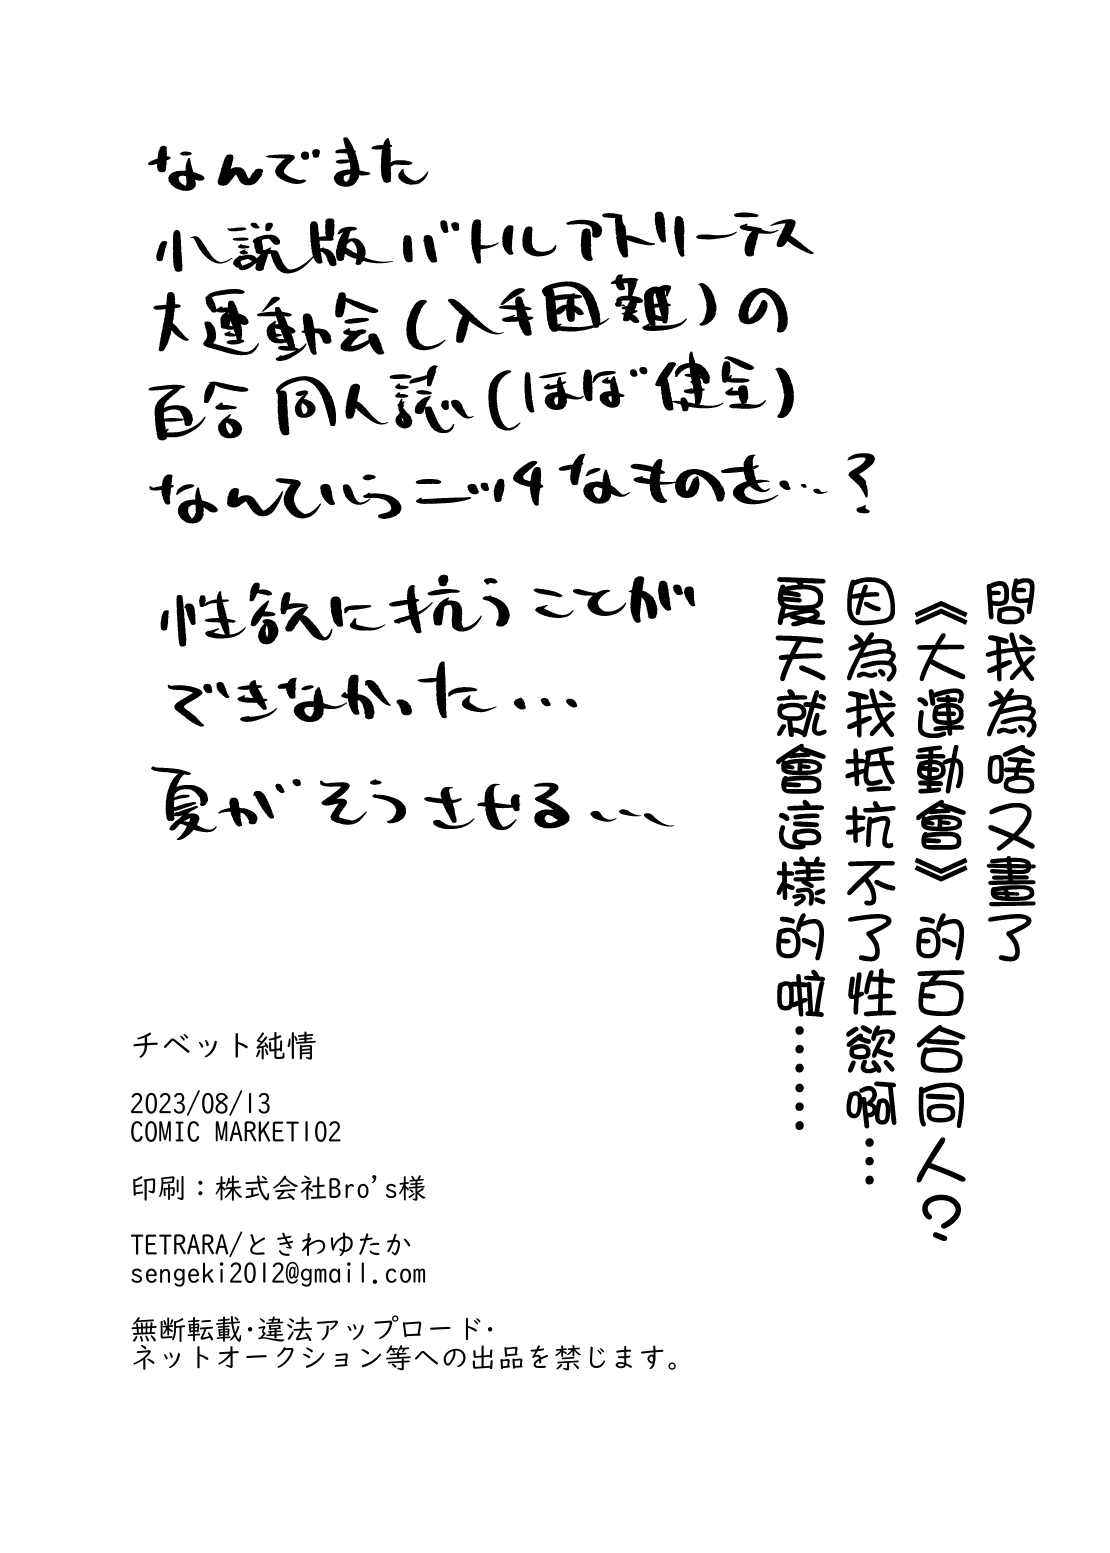 なんでまた
小説版バトルアスリーテス
大運動会(入手困難)の
百合同人誌(ほぼ健全)
なんていうニッチなものを…?
性欲に抗うことが
できなかった…
夏がそうさせる…
問我為啥又畫了
《大運動會》的百合同人?
因為我抵抗不了性慾啊…
夏天就會這樣的啦……
チベット純情
2023/08/13
COMIC MARKET102
印刷：株式会社Bro's様
TETRARA/ときわゆたか
sengeki2012@gmail.com
無断転載･違法アップロード･
ネットオークション等への出品を禁じます。